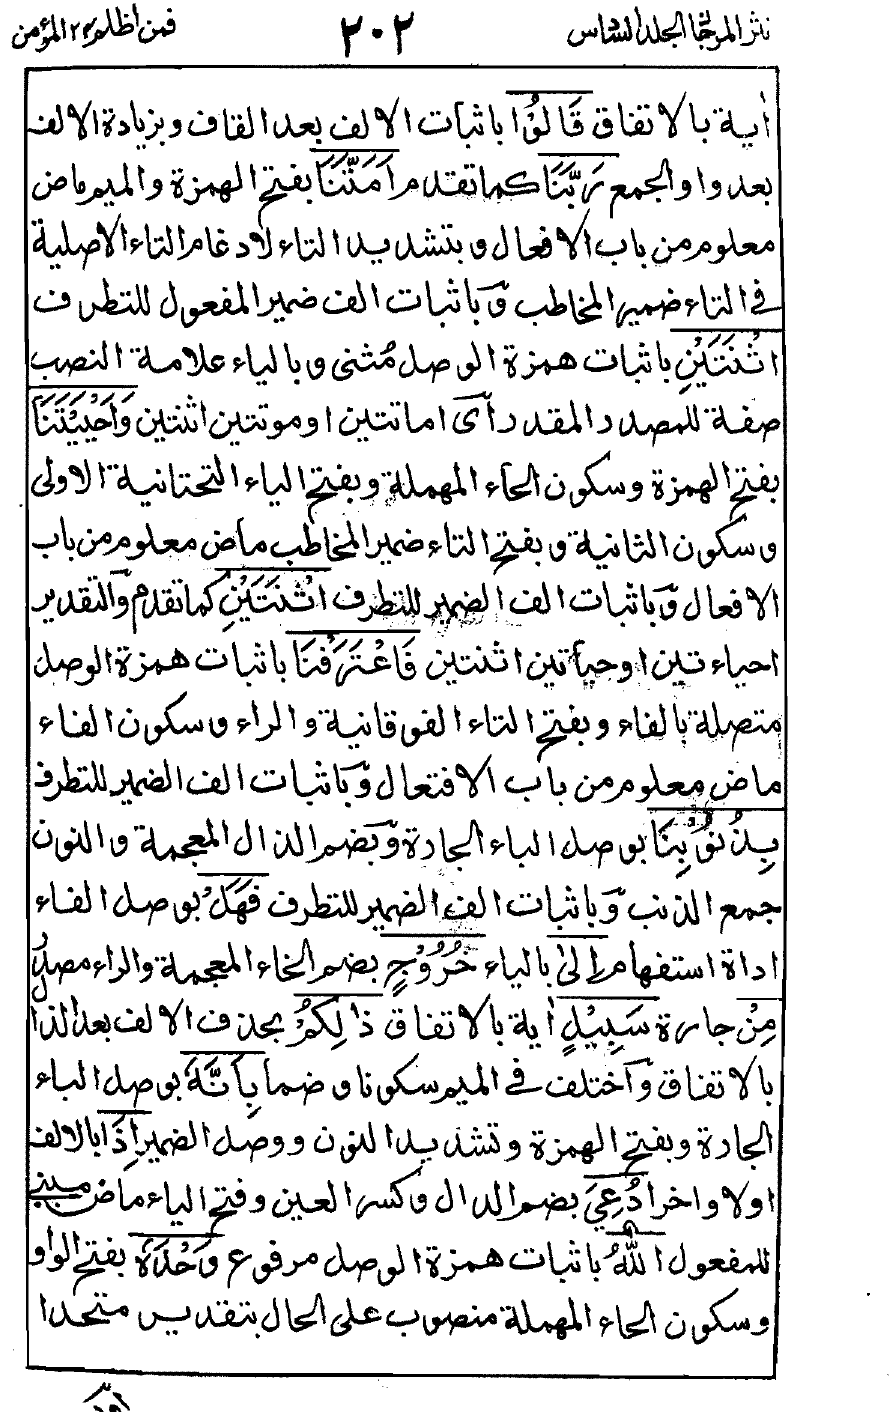 نثر المرجان المجلد السادس
٢٠٢
فمن اظلم ٢٤ المؤمن
أية بالاتفاق قَالُوْا باثبات الالف بعد القاف وبزيادة الالف
بعد واو الجمع رَبَّنَا كما تقدم اَمَتَّنَا بفتح الهمزة والميم ماض
معلوم من باب الافعال وبتشديد التاء لادغام التاء الاصلية
في التاء ضمير المخاطب وَباثبات الف ضمير المفعول للتطرف
اثْنَتَيْنِ باثبات همزة الوصل مُثنى وبالياء علامة النصب
صفة للمصدر المقدر أى اماتتين او موتتين اثنتين وَاَحْيَيْتَنَا
بفتح الهمزة وسكون الحاء المهملة وبفتح الياء التحتانية الاولى
وسكون الثانية وبفتح التاء ضمير المخاطب ماض معلوم من باب
الافعال وَباثبات الف الضمير للتطرف اثْنَتَيْنِ كما تقدم وَالتقدير
احياءتين او حيأتين اثنتين فَاعْتَرَفْنَا باثبات همزة الوصل
متصلة بالفاء وبفتح التاء الفوقانية والراء وسكون الفاء
ماض معلوم من باب الافتعال وَباثبات الف الضمير للتطرف
بِذُنُوْبِنَا بوصل الباء الجارة وَبضم الذال المعجمة والنون
جمع الذنب وَباثبات الف الضمير للتطرف فَهَلْ بوصل الفاء
اداة استفهام اِلىٰ بالياء خُرُوْجٍ بضم الخاء المعجمة والراء مصدر
مِنْ جارة سَبِيْلٍ أية بالاتفاق ذٰلِكُمْ بحذف الالف بعد الذال
بالاتفاق وَاختلف في الميم سكونا وضما بِاَنَّهٗ بوصل الباء
الجارة وبفتح الهمزة وتشديد النون ووصل الضمير اِذَا بالالف
اولا واخرا دُعِيَ بضم الدال وكسر العين وفتح الياء ماض مبني
للمفعول اللّٰهُ باثبات همزة الوصل مرفوع وَحْدَهٗ بفتح الواو
وسكون الحاء المهملة منصوب على الحال بتقدير متحدا